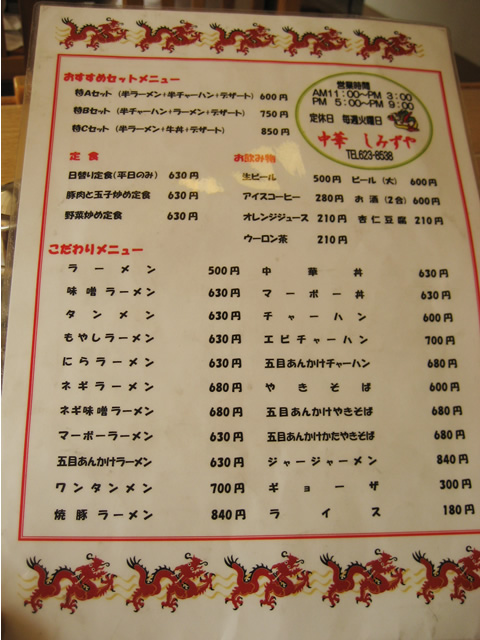 おすすめセットメニュー
特Aセット（半ラーメン+半チャーハン+デザート） 600円
特Bセット（半チャーハン+ラーメン+デザート） 750円
特Cセット（半ラーメン+牛丼+デザート） 850円
営業時間
AM11:00〜PM 3:00
PM 5:00〜PM 9:00
定休日 毎週火曜日
中華 しみずや
TEL623-8538
定食
日替り定食(平日のみ) 630円
豚肉と玉子炒め定食 630円
野菜炒め定食 630円
お飲み物
生ビール 500円 ビール（大） 600円
アイスコーヒー 280円 お酒（2合） 600円
オレンジジュース 210円 杏仁豆腐 210円
ウーロン茶 210円
こだわりメニュー
ラーメン 500円
味噌ラーメン 630円
タンメン 630円
もやしラーメン 630円
にらラーメン 630円
ネギラーメン 680円
ネギ味噌ラーメン 680円
マーボーラーメン 630円
五目あんかけラーメン 630円
ワンタンメン 700円
焼豚ラーメン 840円
中華丼 630円
マーボー丼 630円
チャーハン 600円
エビチャーハン 700円
五目あんかけチャーハン 680円
やきそば 600円
五目あんかけやきそば 680円
五目あんかけかたやきそば 680円
ジャージャーメン 840円
ギョーザ 300円
ライス 180円